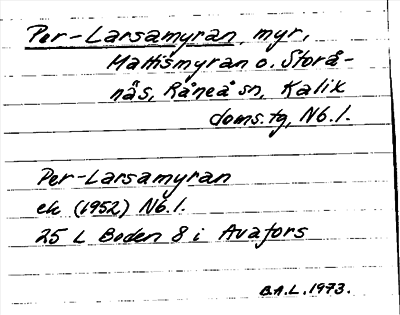 Per-Larsamyran, myr,
Mattismyran o. Storå-
näs, Råneå sn, Kalix
doms.tg, Nb.l.
Per-Larsamyran
ek (1952) Nb.l.
25 L Boden 8 i Avafors
B.A.L. 1973.